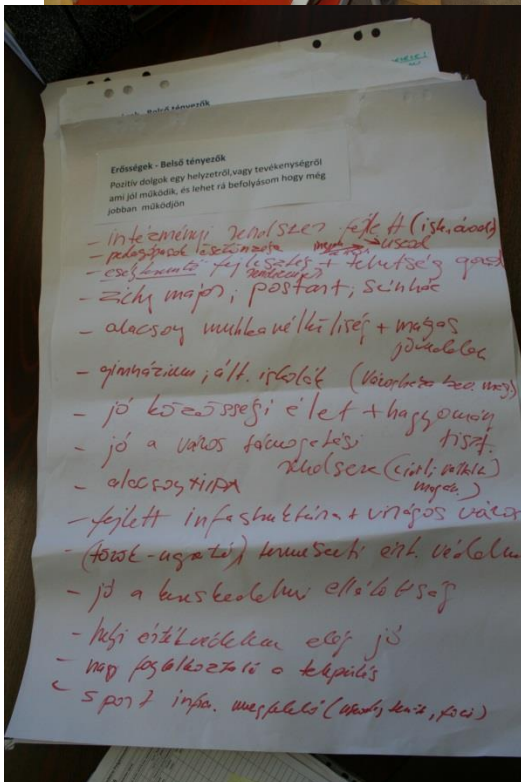 Erősségek - Belső tényezők
Pozitív dolgok egy helyzetről,vagy tevékenységről
ami jól működik, és lehet rá befolyásom hogy még
jobban működjön
- intézményi rendszer fejlett (isk, óvoda)
- pedagógusok
- esélyteremtő fejlesztés + tehetség
- Zichy major, postart, színház
- alacsony munkanélküliség + magas
jövedelem
- gimnázium, ált. iskolák (városháza
- jó közösségi élet + hagyomány
tiszt.
- jó a város támogatási
rendszere (civil,
- alacsony
- fejlett infrastruktúra + virágos város
- természeti ért. védelme
- jó a kereskedelmi ellátottság
- helyi értékvédelem elég jó
- nagy foglalkoztató a település
- sport infra. megfelelő (uszoda, tenisz, foci)